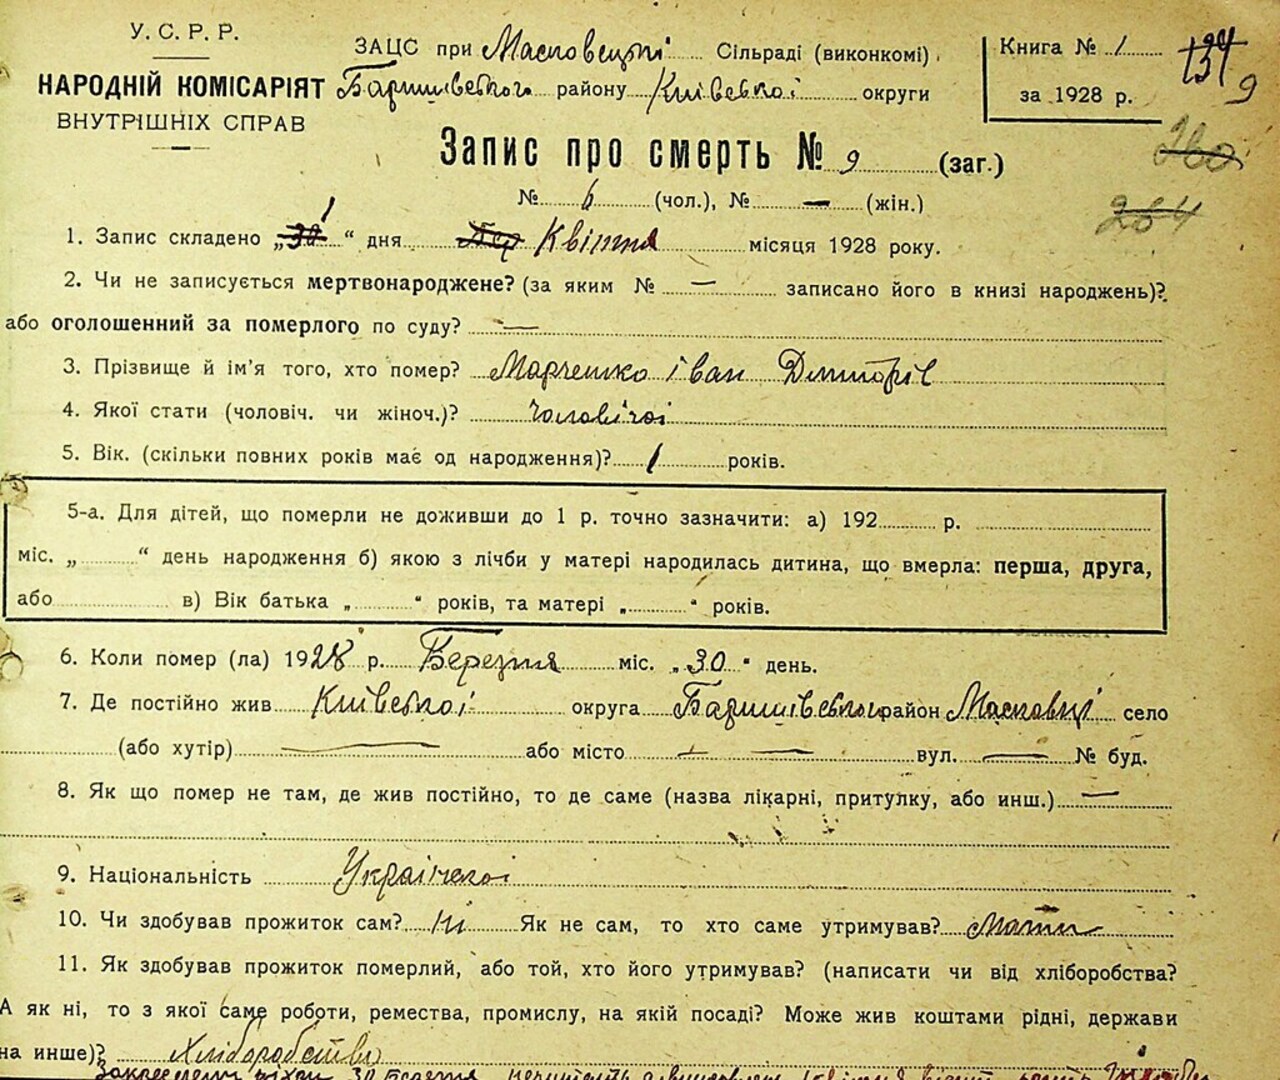 У. С. Р. Р.
НАРОДНІЙ КОМІСАРІЯТ
ВНУТРІШНІХ СПРАВ
ЗАЦС при Масковецькі Сільраді (виконкомі)
Баришівського району Київської округи
Книга № 1
за 1928 р.
134
9
260
264
Запис про смерть № 9 (заг.)
№ 6 (чол.), № — (жін.)
1. Запис складено „30 1“ дня Квітня місяця 1928 року.
2. Чи не записується мертвонароджене? (за яким № — записано його в книзі народжень)?
або оголошенний за померлого по суду? —
3. Прізвище й ім'я того, хто помер? Марченко Іван Дмитрів
4. Якої стати (чоловіч. чи жіноч.)? чоловічої
5. Вік. (скільки повних років має од народження)? 1 років.
5-а. Для дітей, що померли не доживши до 1 р. точно зазначити: а) 192 р.
міс. „ “ день народження б) якою з лічби у матері народилась дитина, що вмерла: перша, друга,
або в) Вік батька „ “ років, та матері „ “ років.
6. Коли помер (ла) 1928 р. Березня міс. „30“ день.
7. Де постійно жив Київської округа Баришівського район Масковці село
(або хутір) — або місто — — вул. — № буд.
8. Як що помер не там, де жив постійно, то де саме (назва лікарні, притулку, або инш.) —
9. Національність Української
10. Чи здобував прожиток сам? Ні Як не сам, то хто саме утримував? Мати
11. Як здобував прожиток померлий, або той, хто його утримував? (написати чи від хліборобства?
А як ні, то з якої саме роботи, ремества, промислу, на якій посаді? Може жив коштами рідні, держави
на инше)? Хліборобство